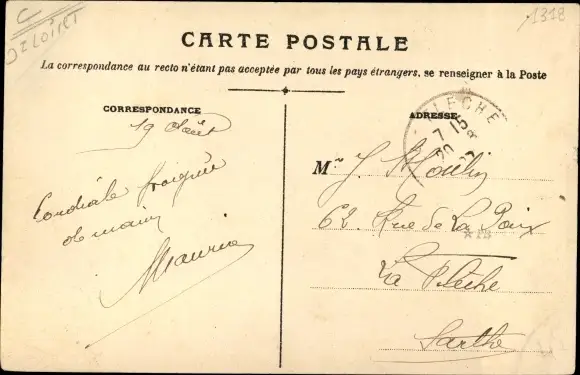 C
1318
CARTE POSTALE
La correspondance au recto n'étant pas acceptée par tous les pays étrangers, se renseigner à la Poste
CORRESPONDANCE
19 Août
Cordiale poignée
de main
Maurice
ADRESSE
LA FLECHE
7 15
20
Mr J. Moulin
62 Rue de La Paix
La Flèche
Sarthe